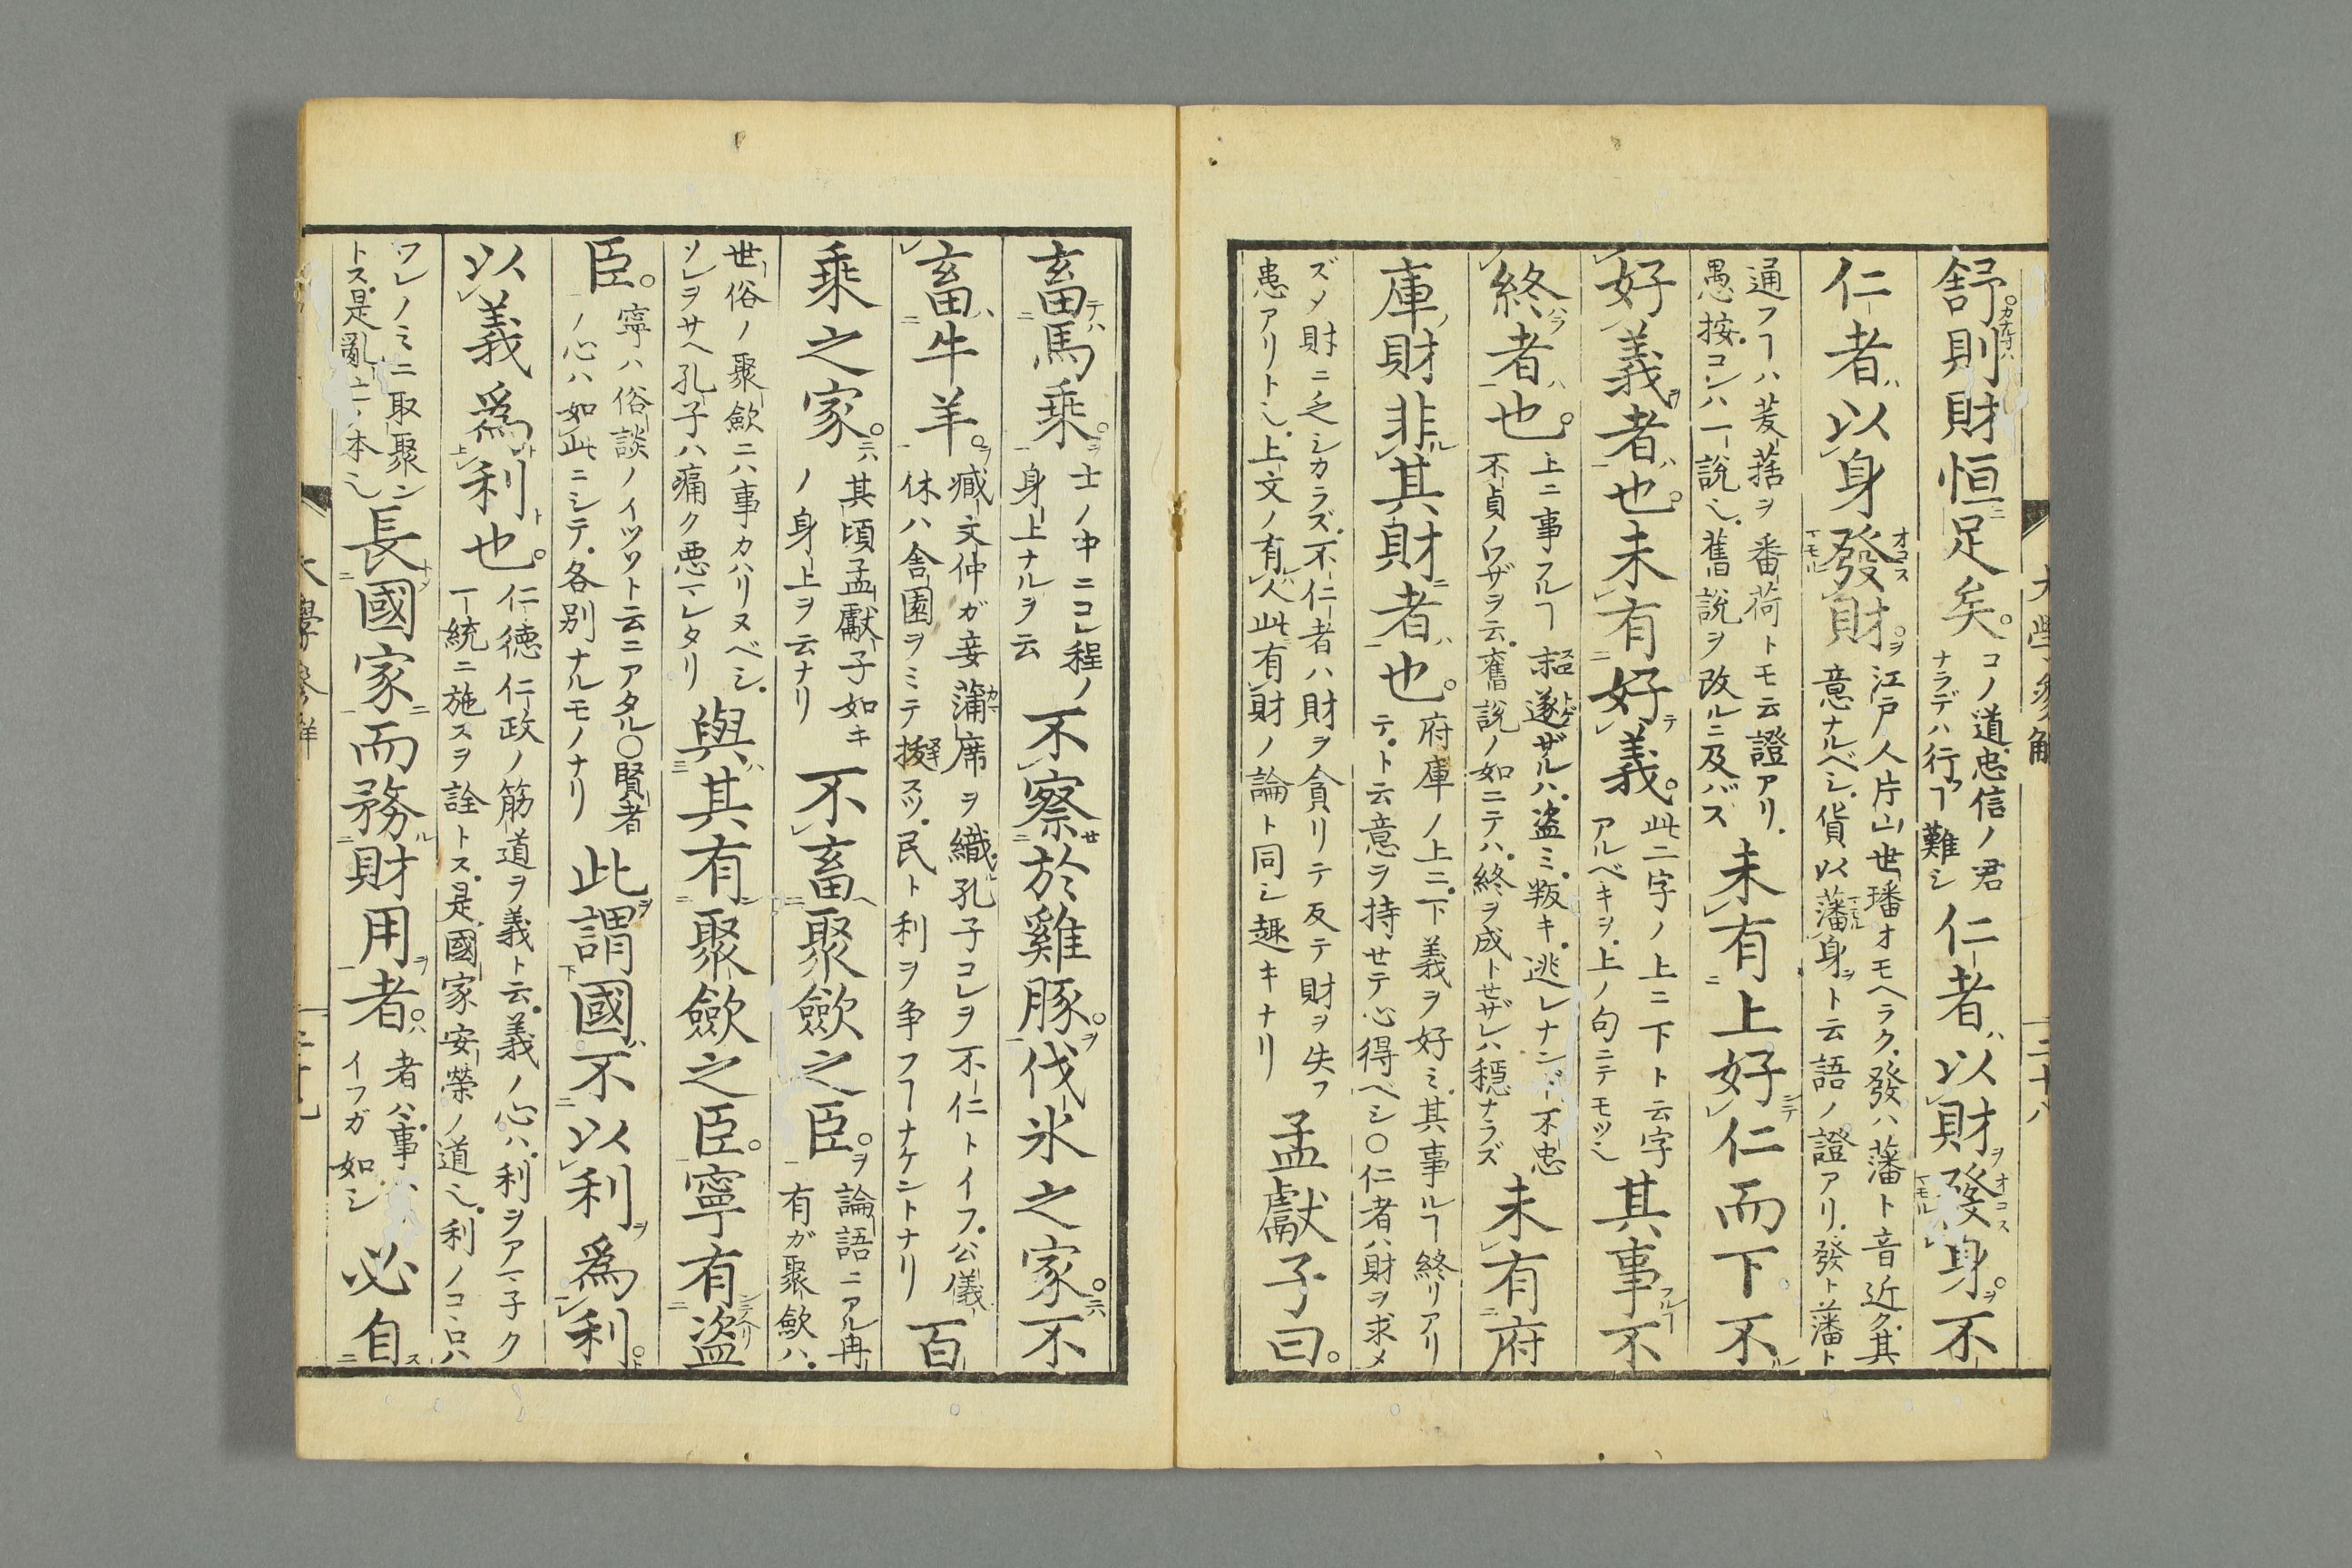 舒則財恒足矣。コノ道忠信ノ君
ナラデハ行フヿ難シ仁者ハ以財發身。不
仁者ハ以身發財。江戸人片山世璠オモヘラク發ハ藩ト音近ク其
意ナルベシ貨以藩身ト云語ノ證アリ發ト藩ト
通フヿハ茇䕸ヲ番荷トモ云證アリ
愚按コレハ一說也舊說ヲ改ルニ及バズ未有上好仁而下不
好義者也。未有好義。此二字ノ上ニ下ト云字
アルベキヲ上ノ句ニテモツ也其事不
終者也。上ニ事フルヿ
遂ザルハ盜ミ叛キ逃レナンド不忠
不貞ノワザヲ云舊說ノ如ニテハ終ヲ成トセザレハ穩ナラズ未有府
庫財非其財者也。府庫ノ上ニ下義ヲ好ミ其事ルヿ終リアリ
テト云意ヲ持セテ心得ベシ○仁者ハ財ヲ求メ
ズメ財ニ乏シカラズ不仁者ハ財ヲ貪リテ反テ財ヲ失フ
患アリト也上文ノ有人此有財ノ論ト同シ趣キナリ孟獻子曰。
大學參解
二十八
畜馬乘。士ノ中ニコレ程ノ
身上ナルヲ云不察於雞豚。伐氷之家。不
畜牛羊。臧文仲ガ妾蒲席ヲ織ル孔子コレヲ不仁トイフ公儀
休ハ舍園ヲミテ拔スツ民ト利ヲ争フヿナケントナリ百
乘之家。其頃孟獻子如キ
ノ身上ヲ云ナリ不畜聚歛之臣。論語ニアル冉
有ガ聚歛ハ
世俗ノ聚歛ニハ事カハリヌベシ
ソレヲサヘ孔子ハ痛ク悪マレタリ與其有聚歛之臣。寧有盜
臣。寧ハ俗談ノイツソト云ニアタル○賢者
ノ心ハ如此ニシテ各別ナルモノナリ此謂國不以利爲利。
以義爲利也。仁德仁政ノ筋道ヲ義ト云義ノ心ハ利ヲアマ子ク
一統ニ施スヲ詮トス是國家安榮ノ道也利ノコヽロハ
ワレノミニ取聚ン
トス是亂亡ノ本也長國家而務財用者。者ハ事
イフガ如シ必自
大學參解
二十九